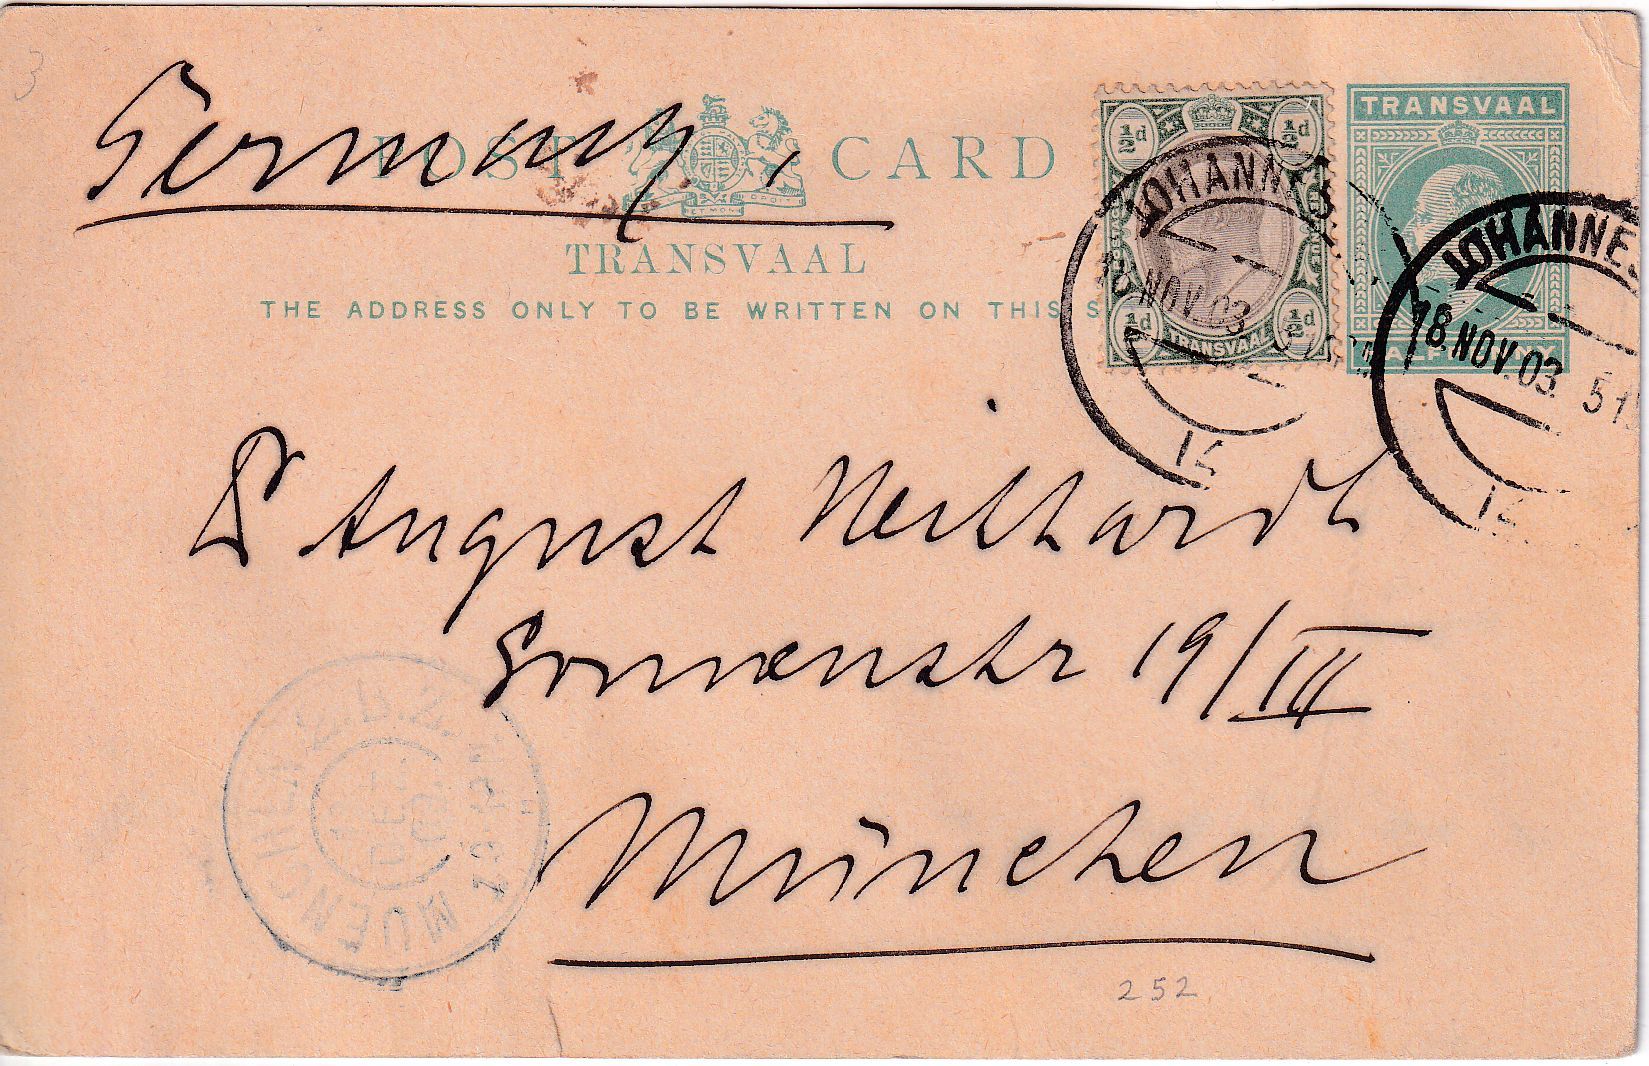 3
Germany,
POST CARD
TRANSVAAL
THE ADDRESS ONLY TO BE WRITTEN ON THIS S
½d ½d
½d ½d
TRANSVAAL
TRANSVAAL
HALFPENNY
JOHANNES
18 NOV. 03
JOHANNES
18. NOV. 03. 51
Dr August Neithardt
19/III
München
MUENCHEN
252